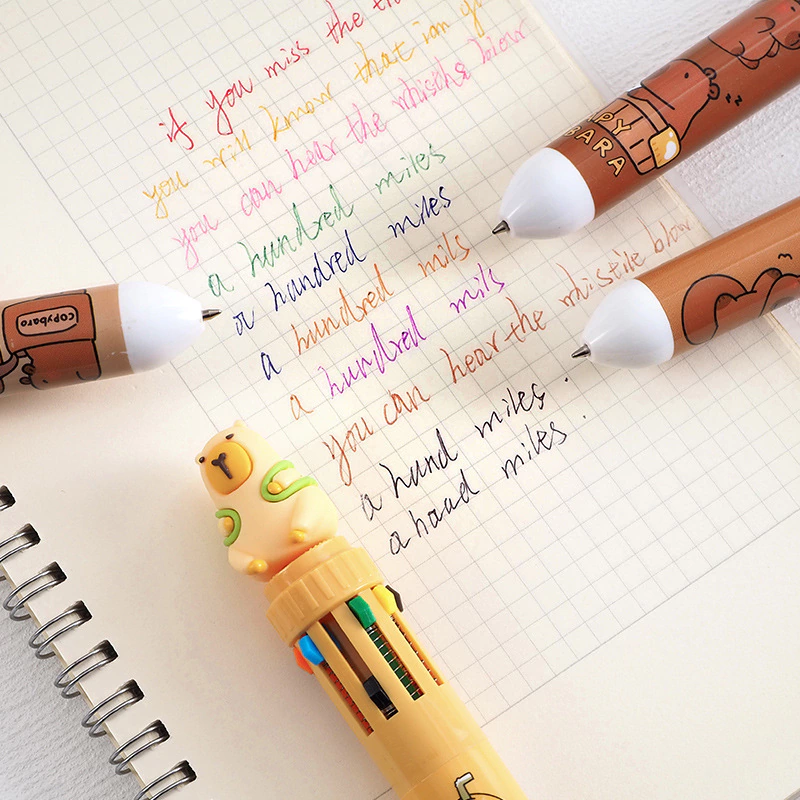 if you miss the
you will know that im
you can hear the whisths blow
a hundred miles
a handred miles
a hundred mils
a hundred mils
you can hear the whistile blow
a hund miles.
a haad miles.
BARA
COPYbaro
zz